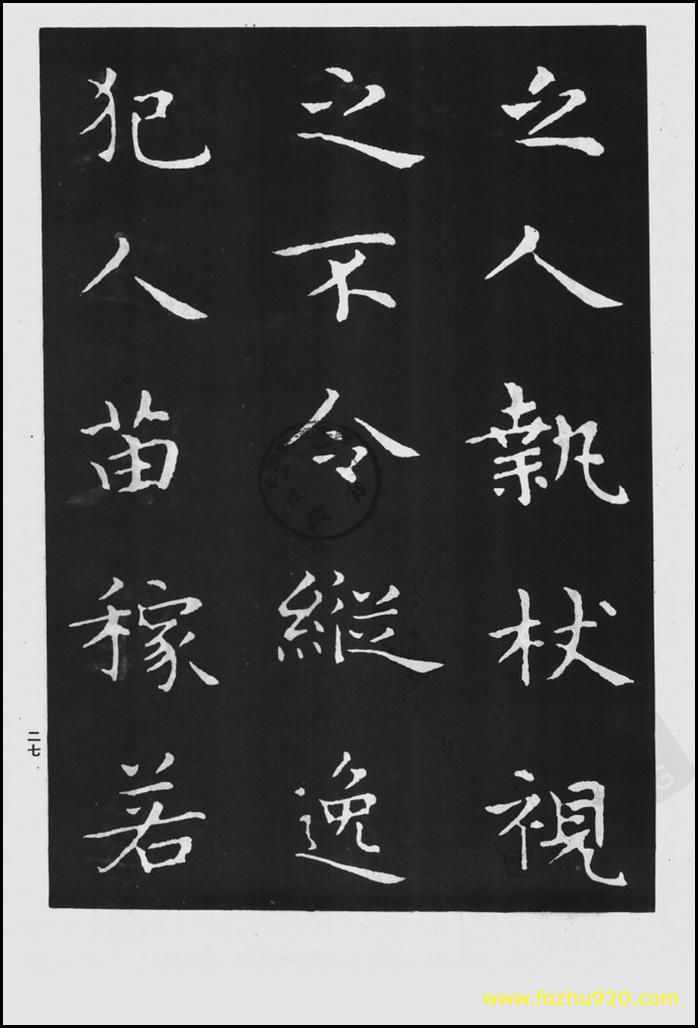 之人執杖視
之不令縱逸
犯人苗稼若
二七
www.fozhu920.com